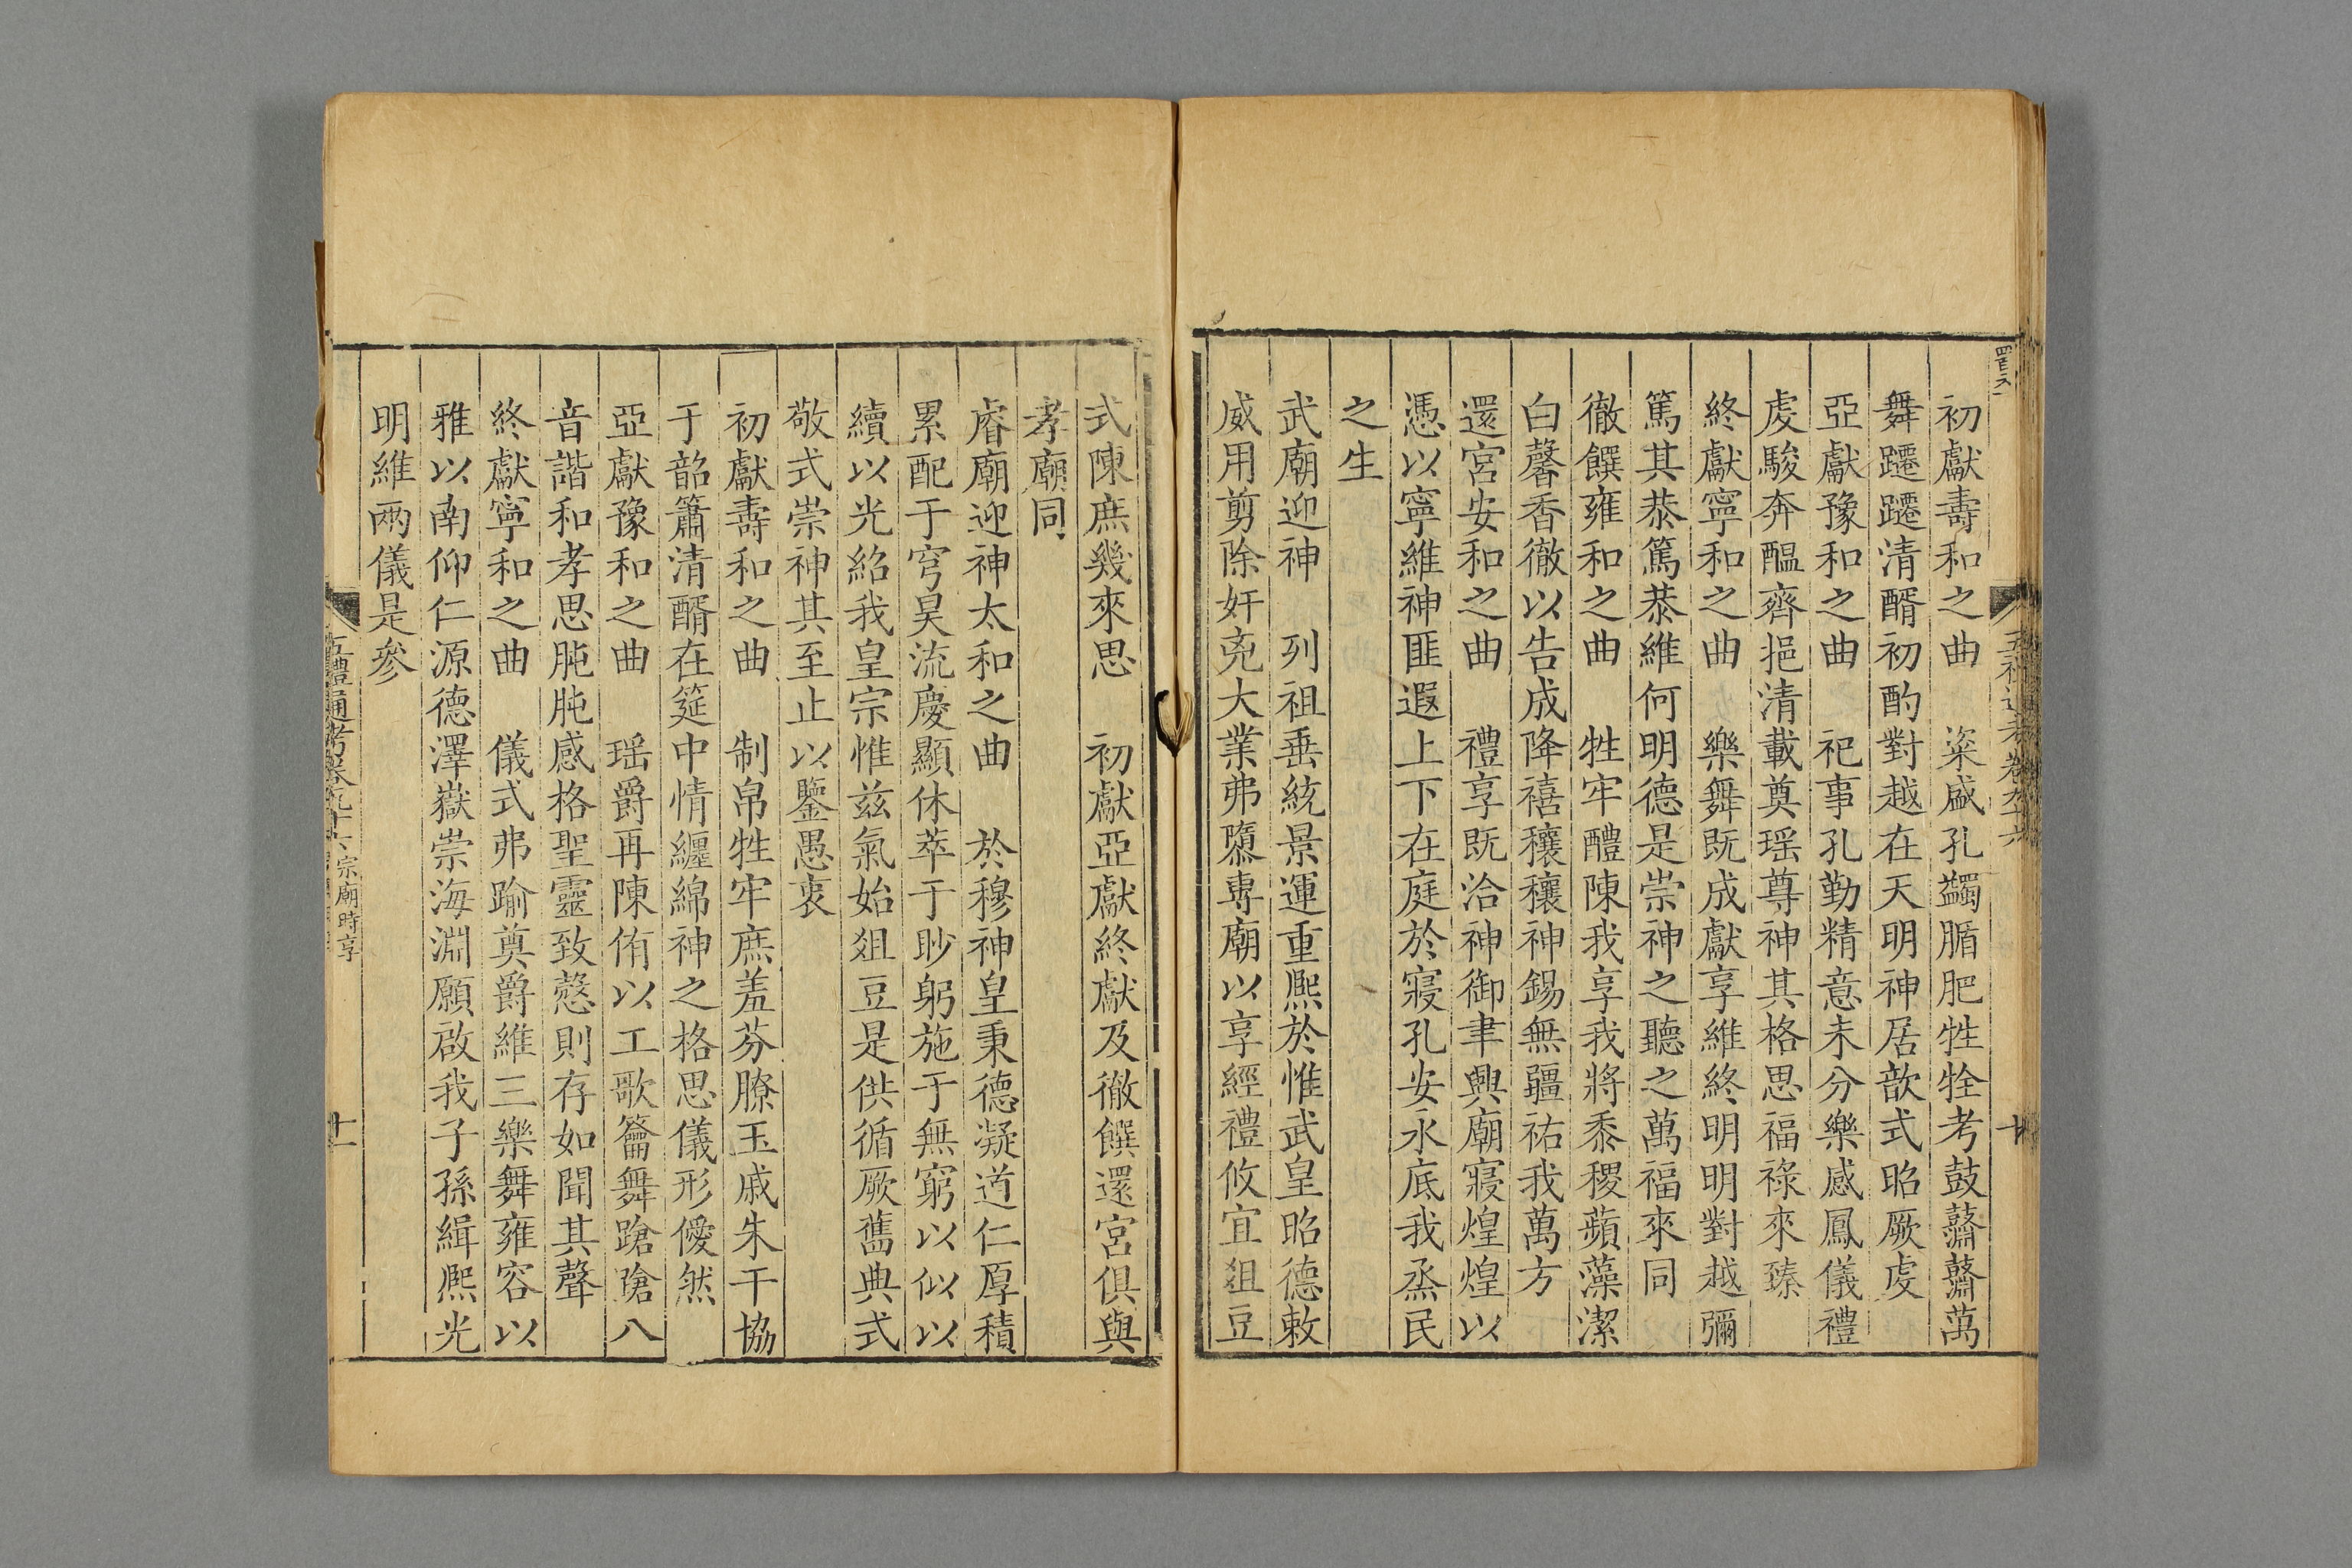 初獻壽和之曲　粢盛孔蠲腯肥牲牷考鼓虀虀萬
舞躚躚清醑初酌對越在天明神居歆式昭厥虔
亞獻豫和之曲　祀事孔勤精意未分樂感鳳儀禮
虔駿奔醖齊挹清載奠瑶尊神其格思福祿來臻
終獻寧和之曲　樂舞既成獻享維終明明對越彌
篤其恭篤恭維何明德是崇神之聽之萬福來同
徹饌雍和之曲　牲牢醴陳我享我將黍稷蘋藻潔
白馨香徹以告成降禧穰穰神錫無疆祐我萬方
還宮安和之曲　禮享既洽神御聿興廟寢煌煌以
憑以寧維神匪遐上下在庭於寢孔安永底我烝民
之生
武廟迎神　列祖垂統景運重熙於惟武皇昭德敕
威用剪除奸兇大業弗隳專廟以享經禮攸宜俎豆
式陳庶幾來思　初獻亞獻終獻及徹饌還宮俱與
孝廟同
睿廟迎神太和之曲　於穆神皇秉德凝道仁厚積
累配于穹昊流慶顯休萃于眇躬施于無窮以似以
續以光紹我皇宗惟兹氣始俎豆是供循厥舊典式
敬式崇神其至止以鑒愚衷
初獻壽和之曲　制帛牲牢庶羞芬膫玉戚朱干協
于韶簫清醑在筵中情纏綿神之格思儀形僾然
亞獻豫和之曲　瑶爵再陳侑以工歌籥舞蹌蹌八
音諧和孝思肫肫感格聖靈致慤則存如聞其聲
終獻寧和之曲　儀式弗踰奠爵維三樂舞雍容以
雅以南仰仁源德澤嶽崇海淵願啟我子孫緝熙光
明維兩儀是參
五禮通考卷九十六　宗廟時享
十一